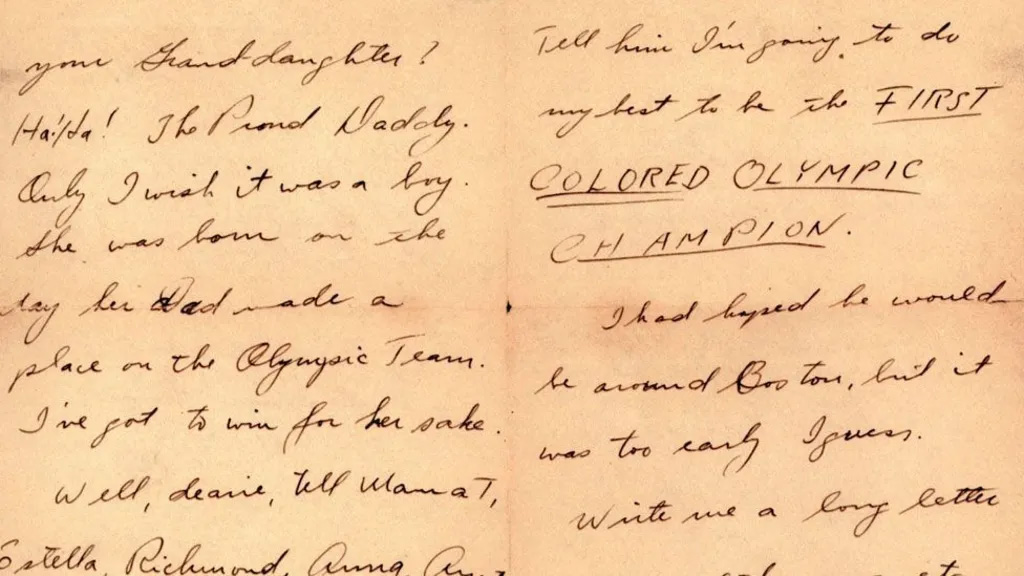 your Granddaughter?
Ha! Ha! The Proud Daddy.
Only I wish it was a boy.
She was born on the
day her Dad made a
place on the Olympic Team.
I've got to win for her sake.
Well, dearie, tell Mama T,
Estella, Richmond, Anna,
Tell him I'm going to do
my best to be the FIRST
COLORED OLYMPIC
CHAMPION.
I had hoped he would
be around Boston, but it
was too early I guess.
Write me a long letter